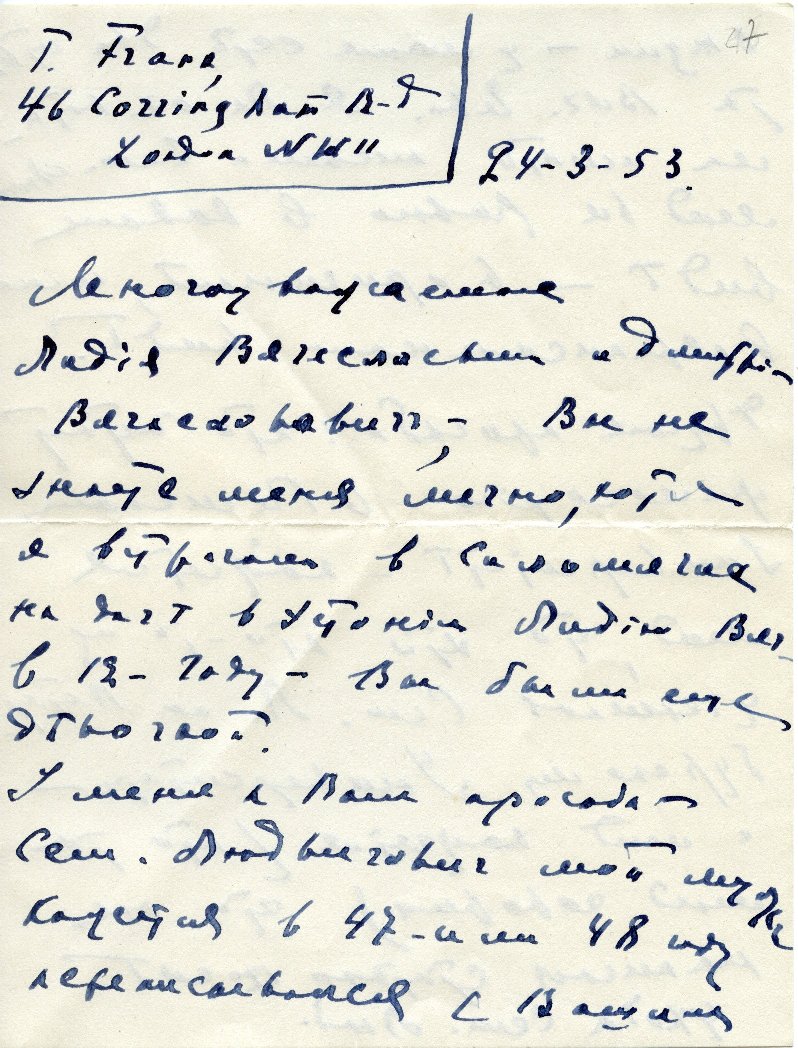 47
T. Frank,
46 Corringham R-d
Лондон NW 11
24-3-53.
Многоуважаемые
Лидiя Вячеславовна и Дмитрiй
Вячеславович, – Вы не
знаете меня лично, хотя
я встречала в Силомягах
на дачѣ в Эстонiи Лидiю Вяч.
в 12- году – Вы были еще
дѣвочкой.
У меня к Вам просьба –
Сем. Людвигович мой муж
кажется в 47-или 48 году
переписывался с Вашим